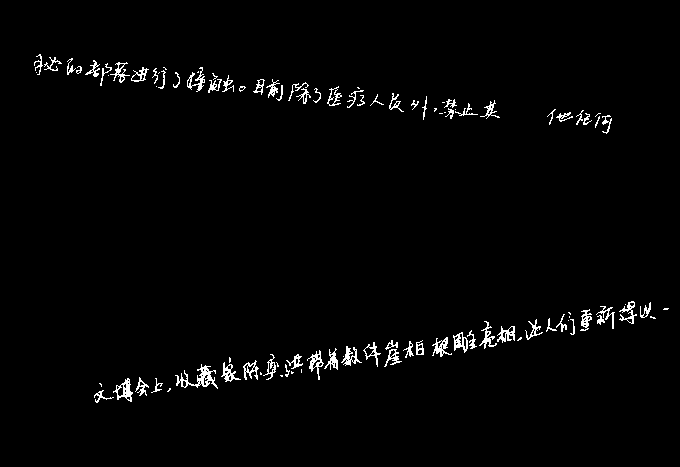 秘的部落进行了接触。目前除了医疗人员外,禁止其 他任何
文博会上,收藏家陈亮洪带着数件崖柏根雕亮相,让人们重新得以一